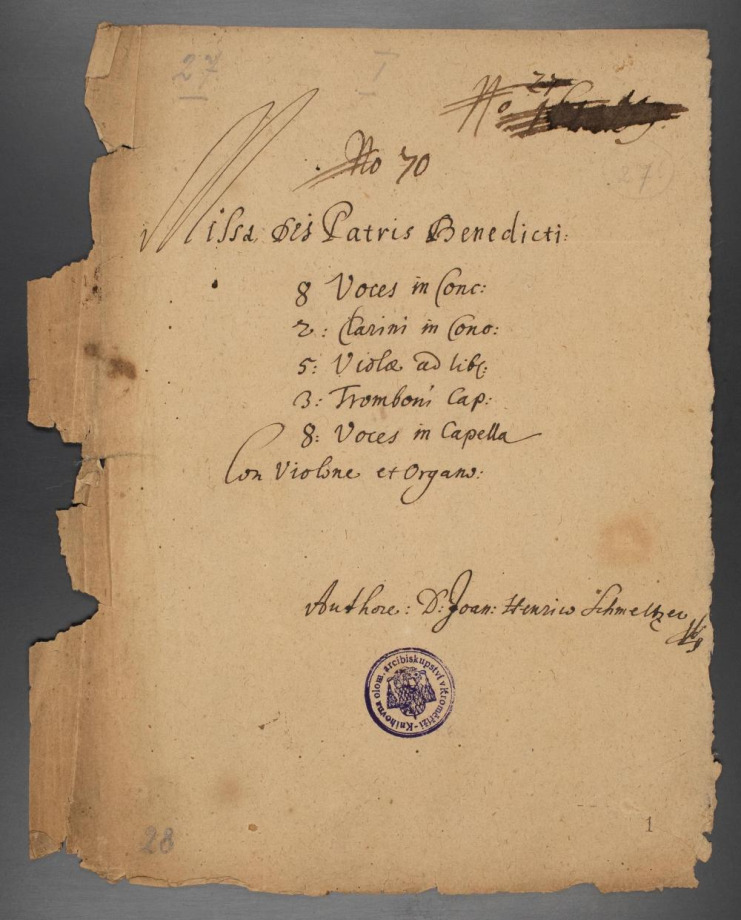 27 I
No 27
No 70
Missa Dei Patris Benedicti:
8 Voces in Conc:
2: Clarini in Conc:
5: Violæ ad lib:
3: Tromboni Cap:
8: Voces in Capella
Con Violone et Organo:
Authore: D: Joan: Henrico Schmeltzer
Knihovna olom. arcibiskupství v Kroměříži
1
28